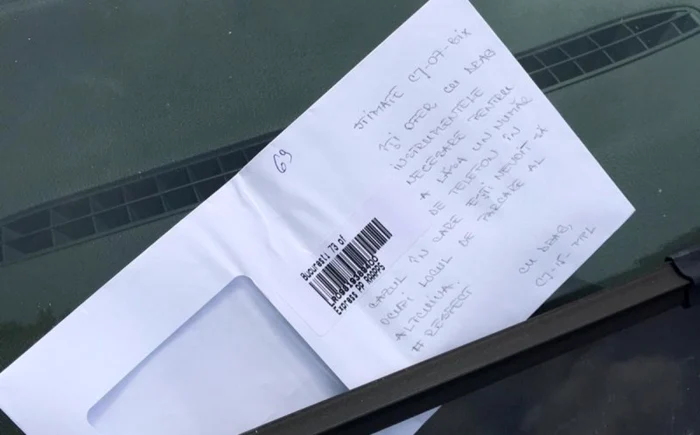 69
STIMATE CJ-07-BIX
ÎȚI OFER CU DRAG
INSTRUMENTELE
NECESARE PENTRU
A LĂSA UN NUMĂR
DE TELEFON ÎN
CAZUL ÎN CARE EȘTI NEVOIT SĂ
OCUPI LOCUL DE PARCARE AL
ALTCUIVA.
# RESPECT
CU DRAG,
CJ-15-
Bucuresti 73 of
Express PP